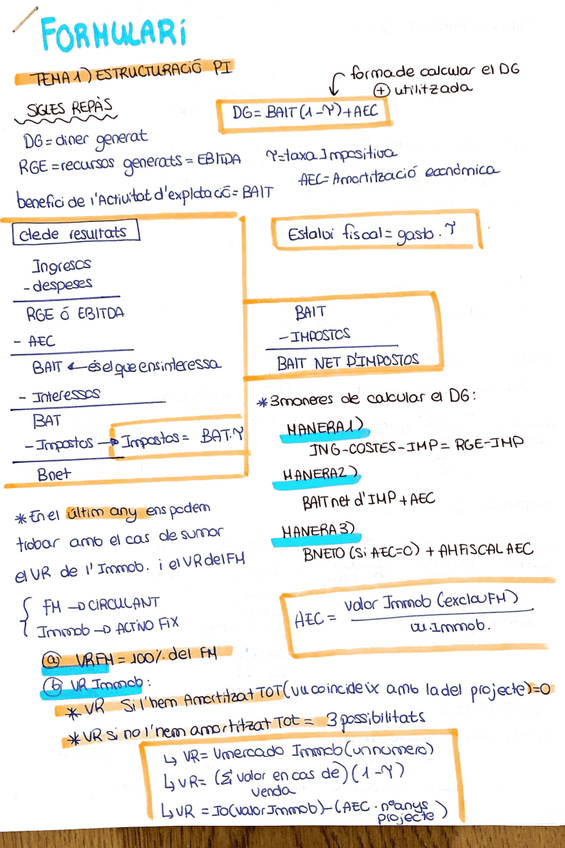 FORMULARI
TEMA 1) ESTRUCTURACIÓ PI
forma de calcular el DG
⊕ utilitzada
SIGLES REPÀS
DG = BAIT (1-ϒ) + AEC
DG = diner generat
RGE = recursos generats = EBITDA
ϒ = taxa Impositiva
AEC = Amortització económica
benefici de l'Activitat d'explotació = BAIT
cte de resultats
Estalvi fiscal = gasto . ϒ
Ingresos
- despeses
RGE ó EBITDA
- AEC
BAIT ← és el que ens interessa
- Interessos
BAT
- Impostos → Impostos = BAT.ϒ
Bnet
BAIT
- IMPOSTOS
BAIT NET D'IMPOSTOS
* 3 maneres de calcular el DG:
MANERA 1)
ING-COSTES-IMP = RGE-IMP
MANERA 2)
BAIT net d'IMP + AEC
MANERA 3)
BNETO (Si AEC=0) + AH FISCAL AEC
* En el últim any ens podem
trobar amb el cas de sumar
el VR de l'Immob. i el VR del FM
{ FM → CIRCULANT
Immob → ACTIVO FIX
AEC = valor Immob (exclou FM)
vu. Immob.
ⓐ VR FM = 100% del FM
ⓑ VR Immob:
* VR Si l'hem Amortitzat TOT (vu coincideix amb la del projecte) = 0
* VR si no l'hem amortitzat Tot = 3 possibilitats
↳ VR = Vmercado Immob (un numero)
↳ VR = (Σ valor en cas de) (1-ϒ)
venda
↳ VR = Io (valor Immob) - (AEC · nº anys
projecte)